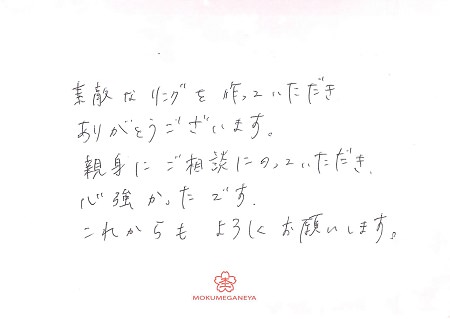 素敵なリングを作っていただき
ありがとうございます。
親身にご相談にのっていただき、
心強かったです.
これからも よろしくお願いします。
MOKUMEGANEYA